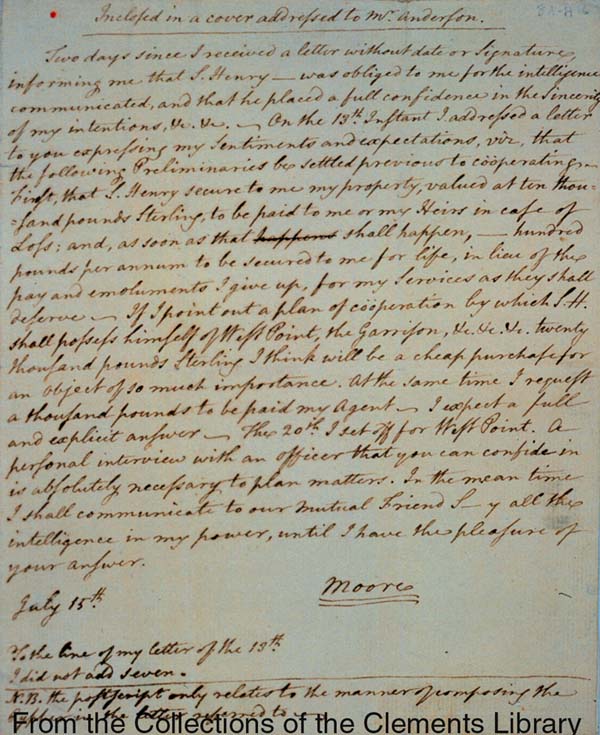 Inclosed in a cover addressed to Mr. Anderson.
Two days since I received a letter without date or Signature,
informing me that S. Henry — was obliged to me for the intelligence
communicated, and that he placed a full confidence in the Sincerity
of my intentions, &c. &c. — On the 13th. Instant I addressed a letter
to you expressing my Sentiments and expectations, viz, that
the following Preliminaries be settled previous to coöperating —
First, that S. Henry secure to me my property, valued at ten thou-
=sand pounds Sterling, to be paid to me or my Heirs in case of
Loss; and, as soon as that happens shall happen, — hundred
pounds per annum to be secured to me for life, in lieu of the
pay and emoluments I give up, for my Services as they shall
deserve — If I point out a plan of coöperation by which S. H.
shall possess himself of West Point, the Garrison, &c. &c. &c. twenty
thousand pounds Sterling I think will be a cheap purchase for
an object of so much importance. At the same time I request
a thousand pounds to be paid my Agent — I expect a full
and explicit answer — The 20th. I set off for West Point. A
personal interview with an officer that you can confide in
is absolutely necessary to plan matters. In the mean time
I shall communicate to our Mutual Friend S — y all the
intelligence in my power, until I have the pleasure of
your answer.
Moore
July 15th.
To the line of my letter of the 13th.
I did not add seven.
N.B. the postscript only relates to the manner of composing the
in the letter referred to
From the Collections of the Clements Library